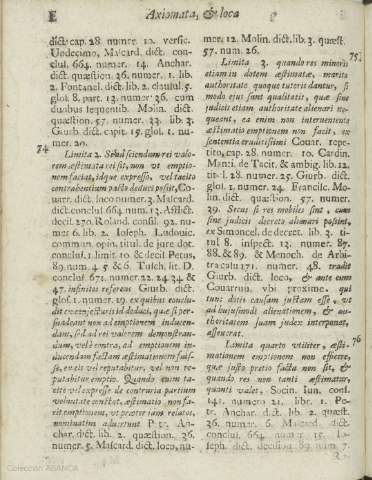 E Axiomata, & loca
dict. cap. 28. numer. 10. versic.
Undecimo, Mascard. dict. con-
clus. 664. numer. 14. Anchar.
dict. quæstion. 36. numer. 1. lib.
2. Fontanel. dict. lib. 2. clausul. 5.
glos. 8. part. 13. numer. 36. cum
duobus sequentib. Molin. dict.
quæstion. 57. numer. 33. lib. 3.
Giurb. dict. capit. 15. glos. 1. nu-
mer. 20.
74 Limita 2. Sed si sciendum rei valo-
rem æstimata rei sit, non ut emptio-
nem faciat, idque expresso, vel tacito
contrahentium pacto deduci possit, Co-
uarr. dict. loco numer. 3. Mascard.
dict. conclus. 664. num. 13. Afflict.
decis. 270. Roland. consil. 92. nu-
mer. 6. lib. 2. Ioseph. Ludouic.
commun. opin. titul. de jure dot.
conclus. 1. limit. 10. & decis. Perus.
89. num. 4. 5. & 6. Tusch. lit. D.
conclus. 671. numer. 22. 24. 34. &
47. infinitos referens Giurb. dict.
glos. 1. numer. 19. ex quibus conclu-
dit ex conjecturis id deduci, quæ si per-
suadeant non ad emptionem inducen-
dam, sed ad rei valorem demonstran-
dum, vel è contra, ad emptionem in-
ducendam factam æstimationem fuis-
se, ea sic vel reputabitur, vel non re-
putabitur emptio. Quando enim ta-
cite vel expresse de contraria partium
voluntate constat, æstimatio non fa-
cit emptionem, ut præter jam relatos,
nominatim aduertunt Petr. An-
char. dict. lib. 2. quæstion. 36.
numer. 5. Mascard. dict. loco, nu-
mer. 12. Molin. dict. lib. 3. quæst.
57. num. 26.
75 Limita 3. quando res minoris
etiam in dotem æstimatæ, merito
authoritate quoque tutoris dantur, si
modo ejus sint qualitatis, quæ sine
judicis etiam authoritate alienari ne-
queant, ea enim non interueniente
æstimatio emptionem non facit, ex
sententia eruditissimi Couar. repe-
tito, cap. 28. numer. 10. Cardin.
Mant. de Tacit. & ambig. lib. 12.
tit. 1. 28. numer. 25. Giurb. dict.
glos. 1. numer. 24. Francisc. Mo-
lin. dict. quæstion. 57. numer.
39. Secus si res mobiles sint, cum
sine judicis decreto alienari possint,
ex Simoncel. de decret. lib. 3. ti-
tul. 8. inspect. 13. numer. 87.
88. & 89. & Menoch. de Arbi-
trar. casu 171. numer. 48. tradit
Giurb. dict. loco, & ante eum
Couarruu. vbi proxime. qui
tunc dotis causam justam esse, vt
ad hujusmodi alienationem, & au-
thoritatem suam judex interponat,
asseuerat.
76 Limita quarto vtiliter, æsti-
mationem emptionem non efficere,
quæ justo pretio facta non sit, &
quando res non tanti æstimatur
quanti valet, Socin. Iun. cons.
141. numero 21. libr. 1. Pe-
tr. Anchar. dict. lib. 2. quæst.
36. numer. 6. Mascard. dict.
conclus. 664. numer. 15. Io-
seph. dict. decision. 89. num. 7.
Colección ABANCA